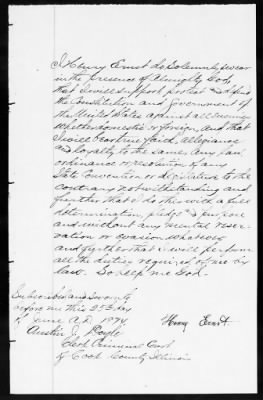 I Henry Ernst do Solemnly swear
in the presence of Almighty God,
that I will support protect and defend
the Constitution and government of
the United States against all enemies
whether domestic or foreign, and that
I will bear true faith, allegiance
and loyalty to the same any law
ordinance or resolution of any
State Convention or legislature to the
contrary notwithstanding and
further that I do this with a full
determination, pledge & purpose
and without any mental reser-
vation or evasion whatsoever
and further that I will perform
all the duties required of me by
law. So help me God.
Henry Ernst
Subscribed and Sworn to
before me this 25th day
of June A.D. 1874
Austin J. Doyle
Clerk Criminal Court
of Cook County Illinois